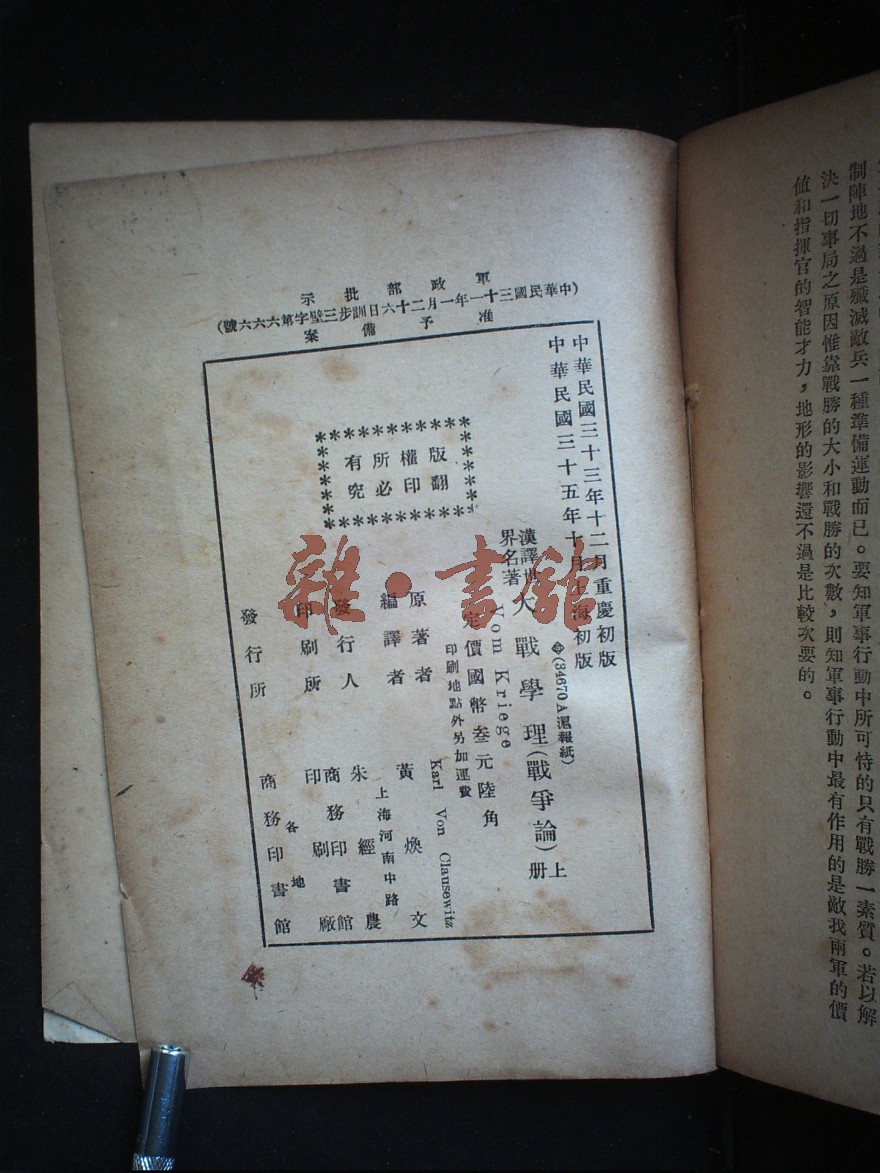 制陣地不過是殲滅敵兵一種準備運動而已。要知軍事行動中所可恃的只有戰勝一素質。若以解
決一切事局之原因惟靠戰勝的大小和戰勝的次數，則知軍事行動中最有作用的是敵我兩軍的價
值和指揮官的智能才力，地形的影響還不過是比較次要的。
軍政部批示
(中華民國三十一年一月二十六日訓步三壁字第六六六號)
准予備案
中華民國三十三年十二月重慶初版
中華民國三十五年十月上海初版
(34670A滬報紙)
漢譯世界名著
大戰學理(戰爭論)上册
Vom Kriege
定價國幣叁元陸角
印刷地點外另加運費
版權所有
翻印必究
原著者 Karl Von Clausewitz
編譯者 黃煥文
發行人 朱經農
上海河南中路
印刷所 商務印書館
印刷廠
發行所 各地
商務印書館
雜·書館